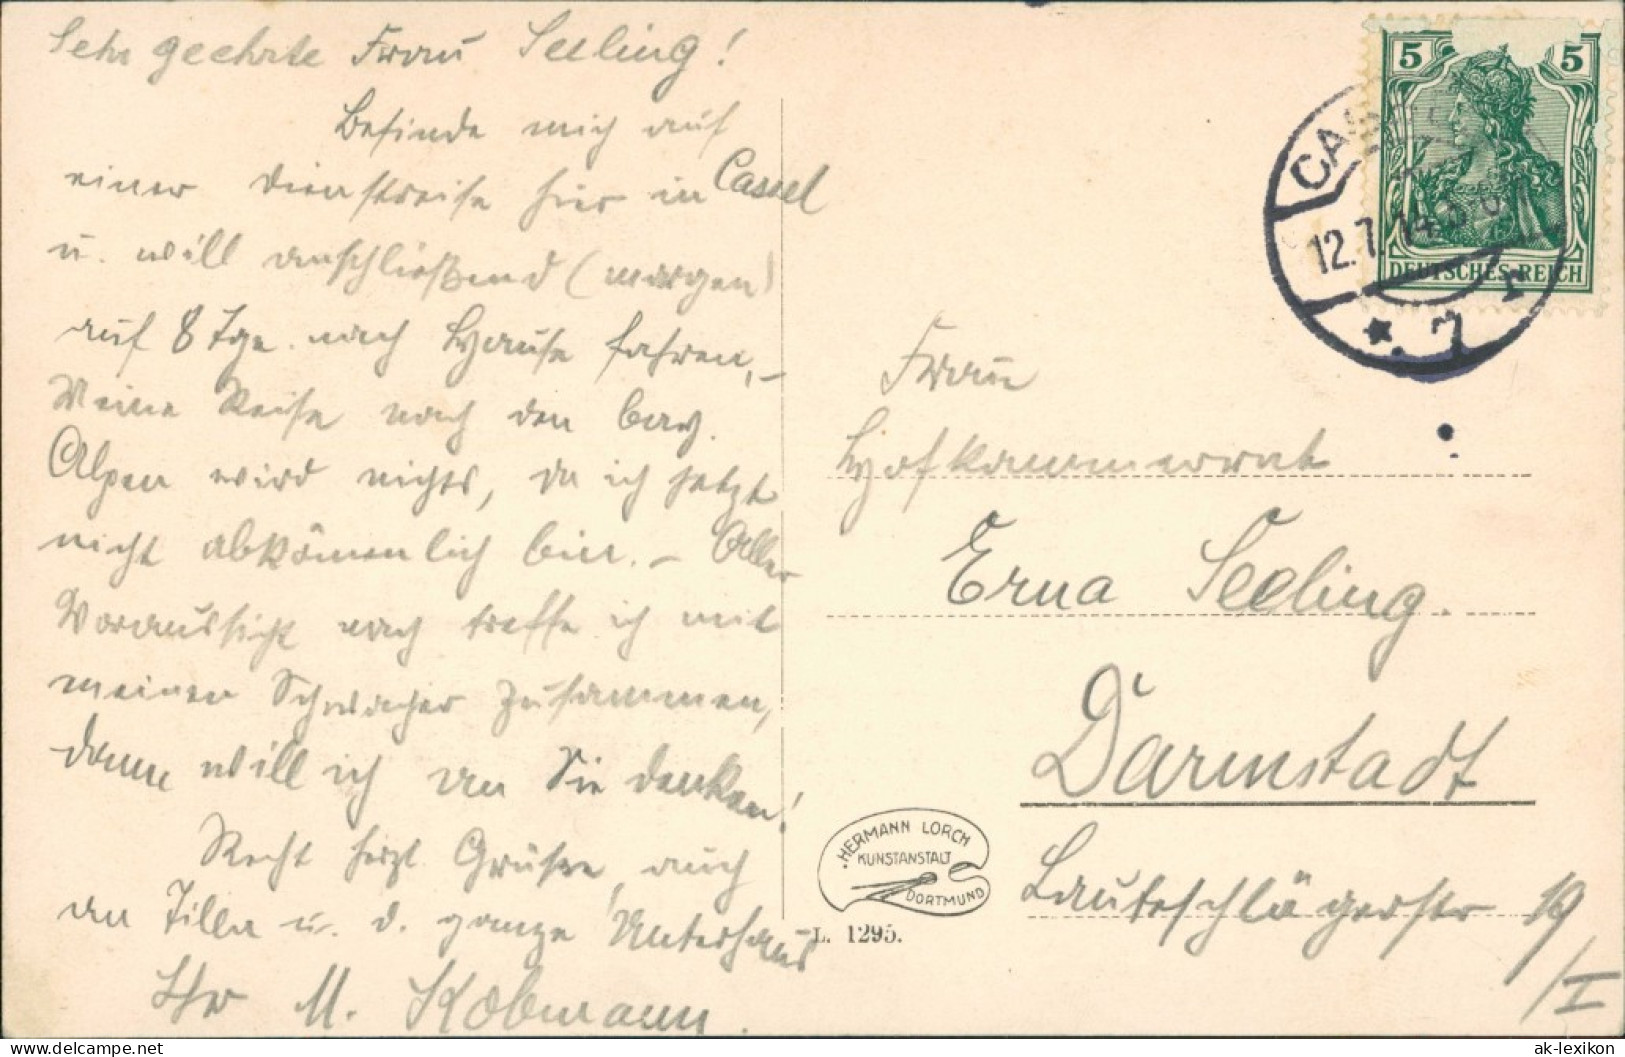 Sehr geehrte Frau Seeling!
Befinde mich auf
einer Dienstreise hier in Cassel
u. will anschließend (morgen)
auf 8 Tge. nach Hause fahren, –
Meine Reise nach den bay.
Alpen wird nichts, da ich jetzt
nicht abkömenlich bin. – Aller
Voraussicht nach treffe ich mit
meinen Schwager zusammen,
dann will ich an Sie denken!
Recht herzl. Grüße, auch
an Tilla u. d. ganze Unterhaus
Ihr M. Kobmann.
5 5
DEUTSCHES REICH
CAS
12.7.14
* 7 r
Frau
Hofkammerrat
Erna Seeling.
Darmstadt
Lauteschlägerstr 19
/I
HERMANN LORCH
KUNSTANSTALT
DORTMUND
L. 1295.
ak-ansichtskarten.de
ak-lexikon